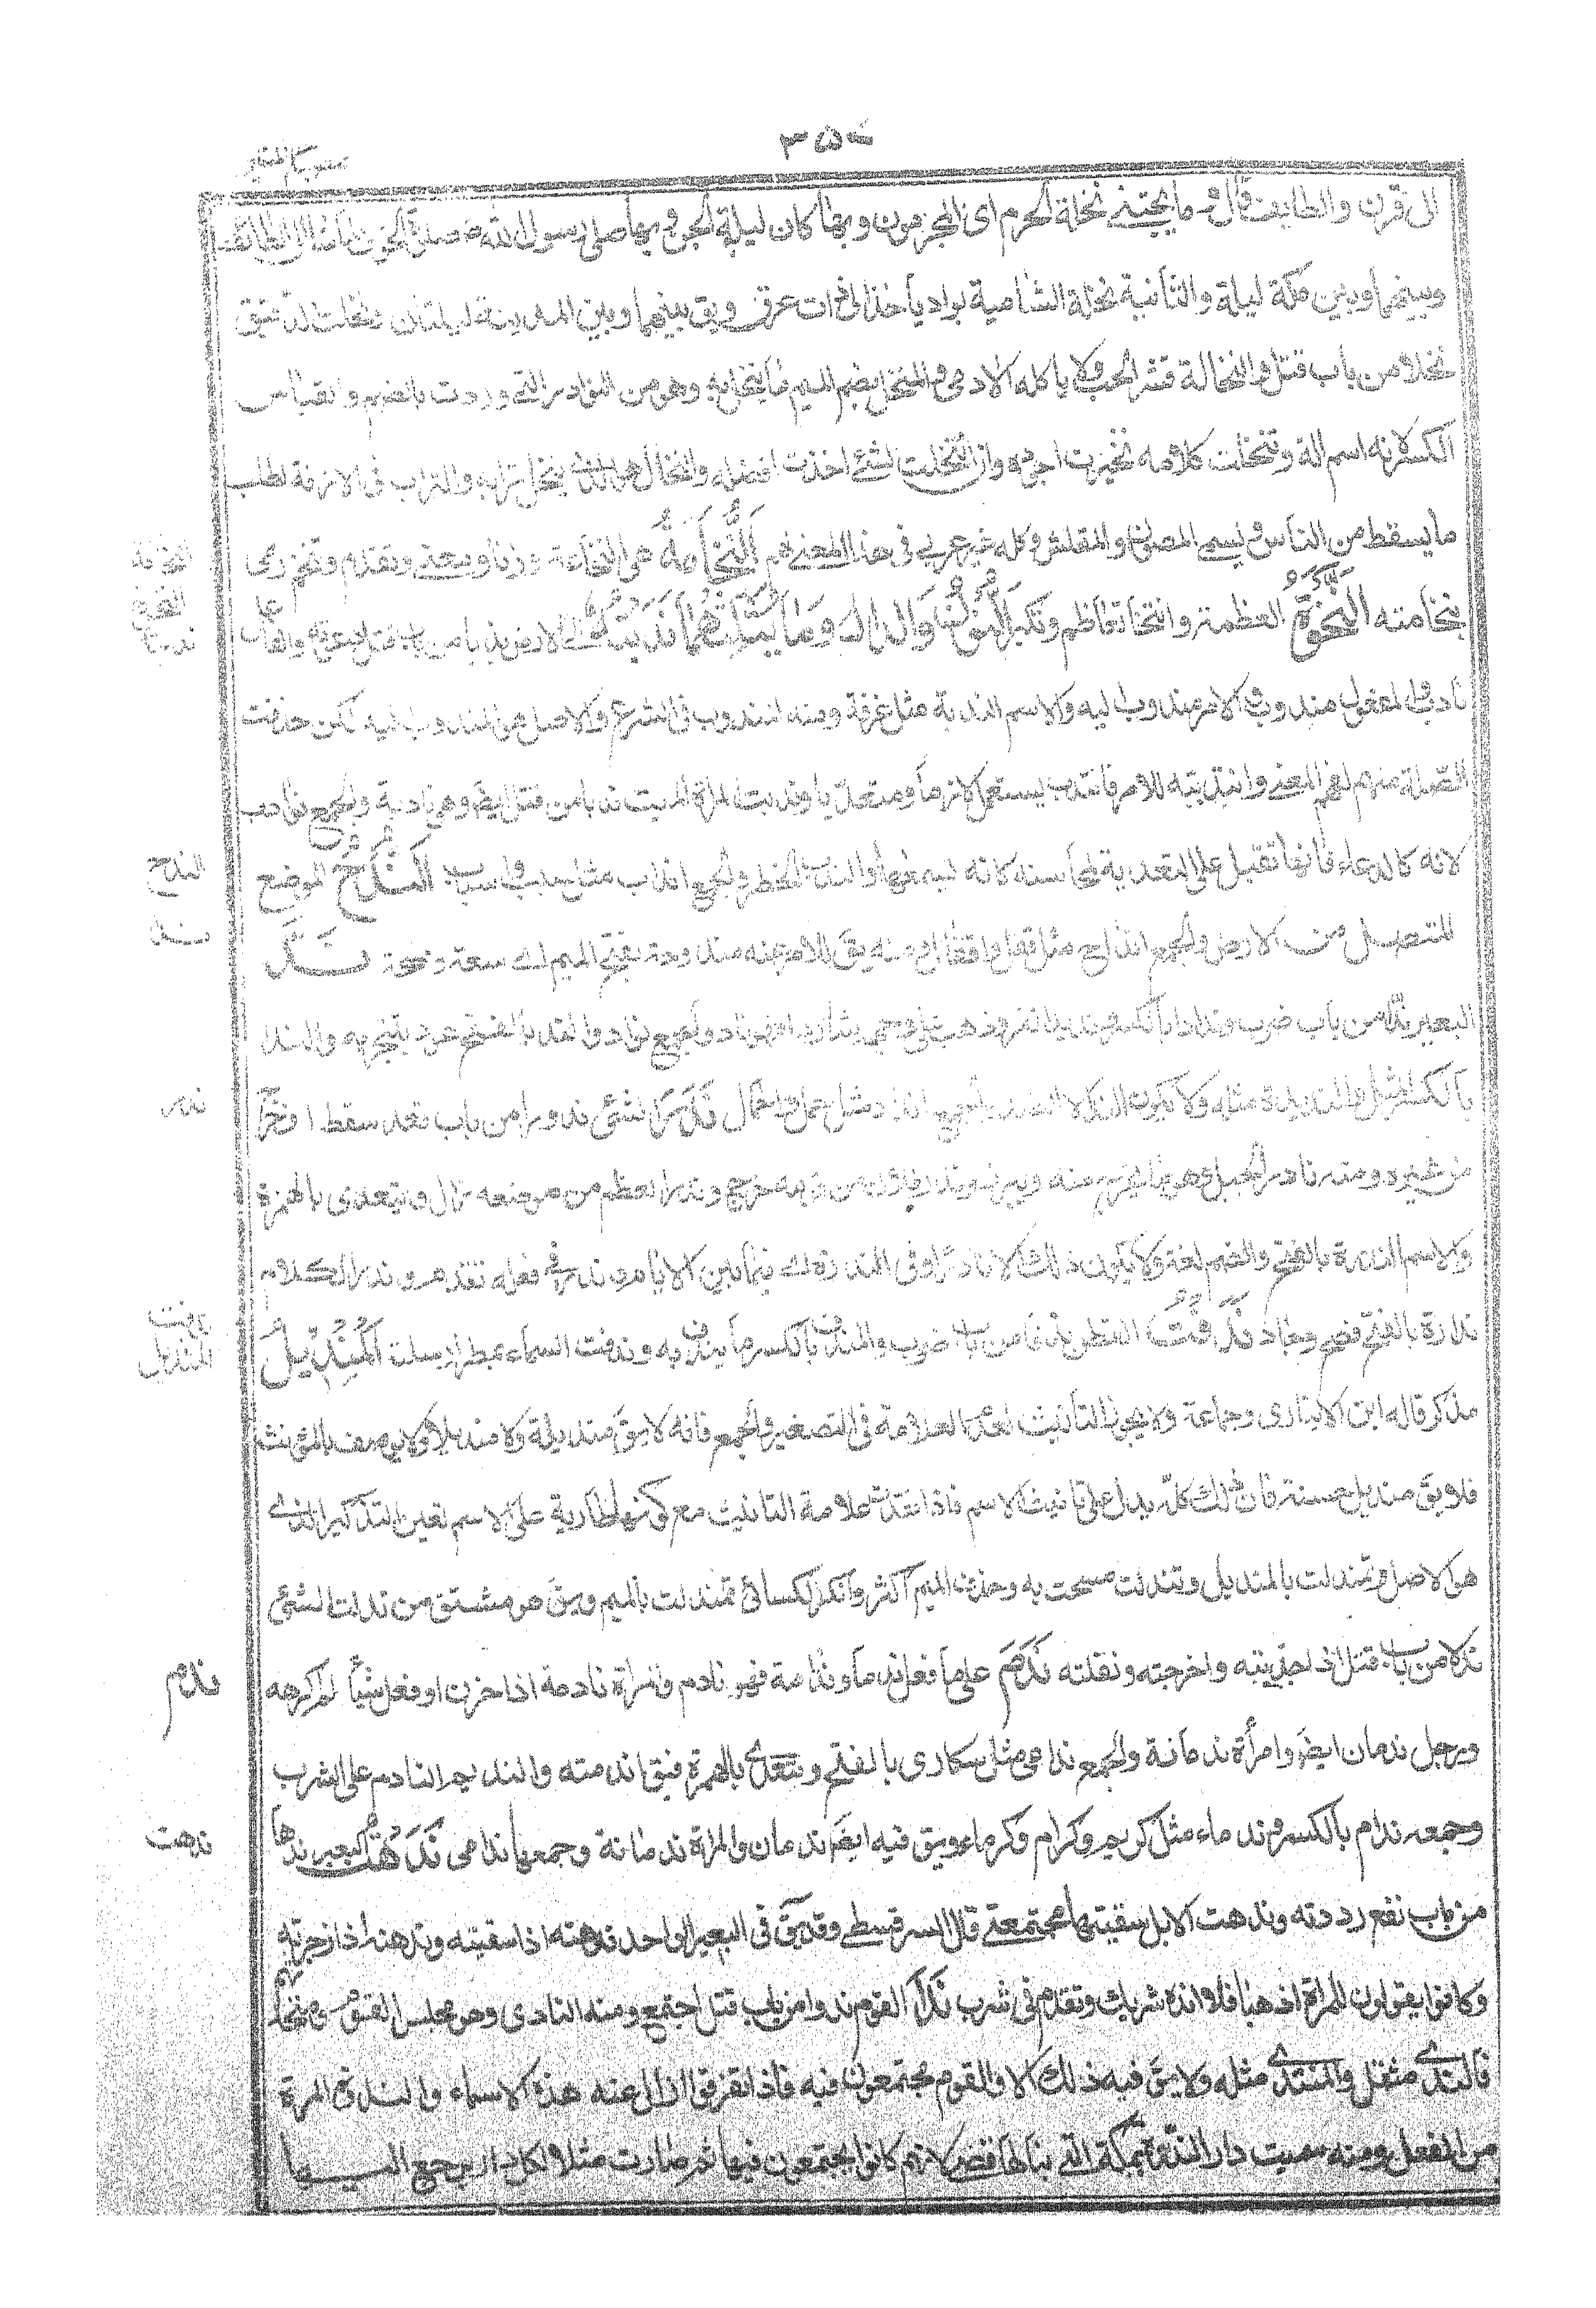 ٣٥٧
الى قرن والطائف قال و ما يجتنبه نخلة الحرم اى المجرمون وبها كان ليلة الجن و بها صلى رسول الله ص صلوة الخوف
وبينهما وبين مكة ليلة والثانية نخلة الشامية بواد ياخذ الى ذات عرق ويق بينهما وبين المدينة ليلتان ونخلت الدقيق
نخلا من باب قتل والنخالة قشر الحب ولا ياكله الادمى والمنخل بضم الميم ما ينخل به وهو من النوادر التى وردت بالضم والقياس
الكسر لانه اسم الة وتنخلت كلامه تخيرت اجوده وانتخلت الشئ اخذت افضله والنخال هو الذى ينخل ترابه والتراب فى الازقة لطلب
ما يسقط من الناس و يسمى المصلق والمقلش وكله غير عربى فى هذا المعنى النخامة هى النخاعة وزنا ومعنى وتقدم وتنخم رمى
بنخامته النخوة العظمة وانتخا تعاظم وتكبر النون والدال وما يثلثهما ندبته الى الامر ندبا من باب قتل دعوته والفاعل
نادب والمفعول مندوب والامر مندوب اليه والاسم الندبة مثل غرفة ومنه المندوب فى الشرع والاصل المندوب اليه لكن حذفت
الصلة منه لفهم المعنى وانتدبته للامر فانتدب يستعمل لازما ومتعديا وندبت المراة الميت ندبا من قتل ايض وهى نادبة والجمع نوادب
لانه كالدعاء فانها تقبل على تعديد محاسنه كانه يسمعها والندب الخطر والجمع انداب مثل سبب واسباب الندح الموضع
المتسع من الارض والجمع انداح مثل قفل واقفال ومنه يق للامر عنه مندوحة بفتح الميم اى سعة وفسحة ند
البعير ندا من باب ضرب وندادا بالكسر ونديدا نفر وذهب على وجهه شاردا فهو ناد والجمع نواد والند بالفتح عود يتبخر به والند
بالكسر المثل والنديد مثله ولا يكون الند الا ضدا والجمع انداد مثل حمل واحمال ندر الشئ ندورا من باب قعد سقط او خرج
من غيره ومنه نادر الجبل وهو ما يخرج منه ويبرز وندر فلان من قومه خرج وندر العظم من موضعه زال ويتعدى بالهمزة
والاسم الندرة بالفتح والضم لغة ولا يكون ذلك الا نادرا وفى الندرة اى فيما بين الايام وندر فى فعله تقدم وندر الكلام
ندارة بالفتح فصح وجاد ندفت القطن ندفا من باب ضرب والمندف بالكسر ما يندف به وندفت السماء بمطر ارسلت المنديل
مذكر قاله ابن الانبارى وجماعة ولا يجوز التانيث لعدم العلامة فى التصغير والجمع فانه لا يق منيديلة ولا منديلات ولا يوصف بالمؤنث
فلا يق منديل حسنة فان ذلك كله يدل على تانيث الاسم فاذا فقدت علامة التانيث مع كونها طارية على الاسم تعين التذكير الذى
هو الاصل وتمندلت بالمنديل وتندلت مسحت به وحذف الميم اكثر وانكر الكسائى تمندلت بالميم ويق هو مشتق من ندلت الشئ
ندلا من باب قتل اذا جذبته واخرجته ونقلته ندم على ما فعل ندما وندامة فهو نادم والمراة نادمة اذا حزن او فعل شيئا ثم كرهه
ورجل ندمان ايض وامرأة ندمانة والجمع ندامى مثل سكارى بالفتح ويتعدى بالهمزة فيق اندمته والنديم المنادم على الشرب
وجمعه ندام بالكسر وندماء مثل كريم وكرام وكرماء ويق فيه ايض ندمان والمراة ندمانة وجمعها ندامى ندهت البعير ندها
من باب نفع رددته وندهت الابل سقيتها مجتمعة قال السرقسطى وقد يق فى البعير الواحد ندهته اذا سقيته وندهته اذا زجرته
وكانوا يقولون للمراة اذهبى فلا انده سربك وتقدم فى سرب ندا القوم ندوا من باب قتل اجتمع ومنه النادى وهو مجلس القوم ومتحدثهم
والندى مثقل والمنتدى مثله ولا يق فيه ذلك الا والقوم مجتمعون فيه فاذا تفرقوا زال عنه هذه الاسماء والندوة المرة
من الفعل ومنه سميت دار الندوة بمكة التى بناها قصى لانهم كانوا يجتمعون فيها ثم صارت مثلا لكل دار يرجع اليها
النخامة
النخوة
ندبته
الندح
ند
ندر
ندفت
المنديل
ندم
ندهت